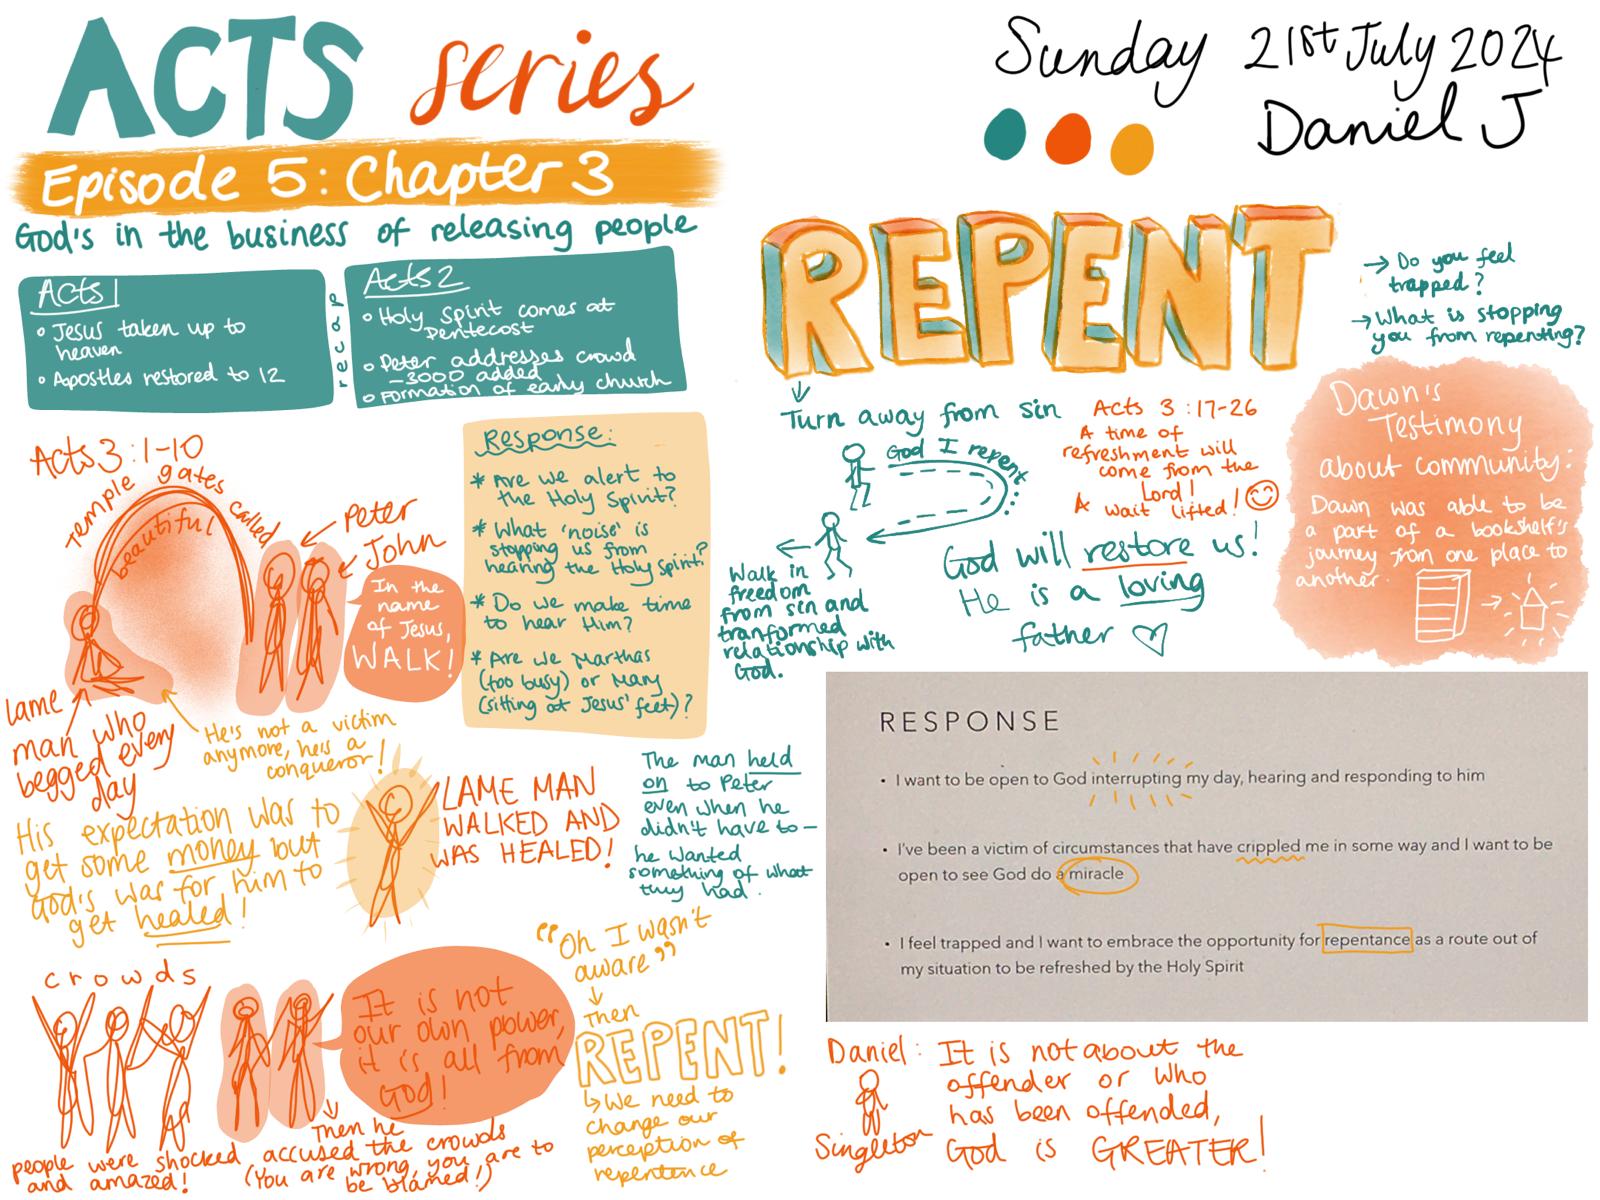 ACTS series
Episode 5: Chapter 3
God's in the business of releasing people
Sunday 21st July 2024
Daniel J
Acts 1
• Jesus taken up to
heaven
• Apostles restored to 12
recap
Acts 2
• Holy Spirit comes at
Pentecost
• Peter addresses crowd
- 3000 added
• Formation of early church
Acts 3:1-10
Temple gates called
beautiful
Peter
John
In the
name
of Jesus,
WALK!
lame
man who
begged every
day
He's not a victim
anymore, he's a
conqueror!
Response:
* Are we alert to
the Holy Spirit?
* What 'noise' is
stopping us from
hearing the Holy Spirit?
* Do we make time
to hear Him?
* Are we Marthas
(too busy) or Mary
(sitting at Jesus' feet)?
His expectation was to
get some money but
God's was for him to
get healed!
LAME MAN
WALKED AND
WAS HEALED!
The man held
on to Peter
even when he
didn't have to -
he wanted
something of what
they had.
crowds
people were shocked
and amazed!
It is not
our own power,
it is all from
God!
Then he
accused the crowds
(You are wrong, you are to
be blamed!)
"Oh I wasn't
aware"
↓
Then
REPENT!
↳ We need to
change our
perception of
repentence
REPENT
↓
Turn away from sin
God I repent...
← Walk in
freedom
from sin and
tranformed
relationship with
God.
Acts 3:17-26
A time of
refreshment will
come from the
Lord!
A wait lifted!
God will restore us!
He is a loving
father ♡
→ Do you feel
trapped?
→ What is stopping
you from repenting?
Dawn's
Testimony
about community:
Dawn was able to be
a part of a bookshelf's
journey from one place to
another.
RESPONSE
• I want to be open to God interrupting my day, hearing and responding to him
• I've been a victim of circumstances that have crippled me in some way and I want to be
open to see God do a miracle
• I feel trapped and I want to embrace the opportunity for repentance as a route out of
my situation to be refreshed by the Holy Spirit
Daniel:
Singleton
It is not about the
offender or who
has been offended,
God is GREATER!